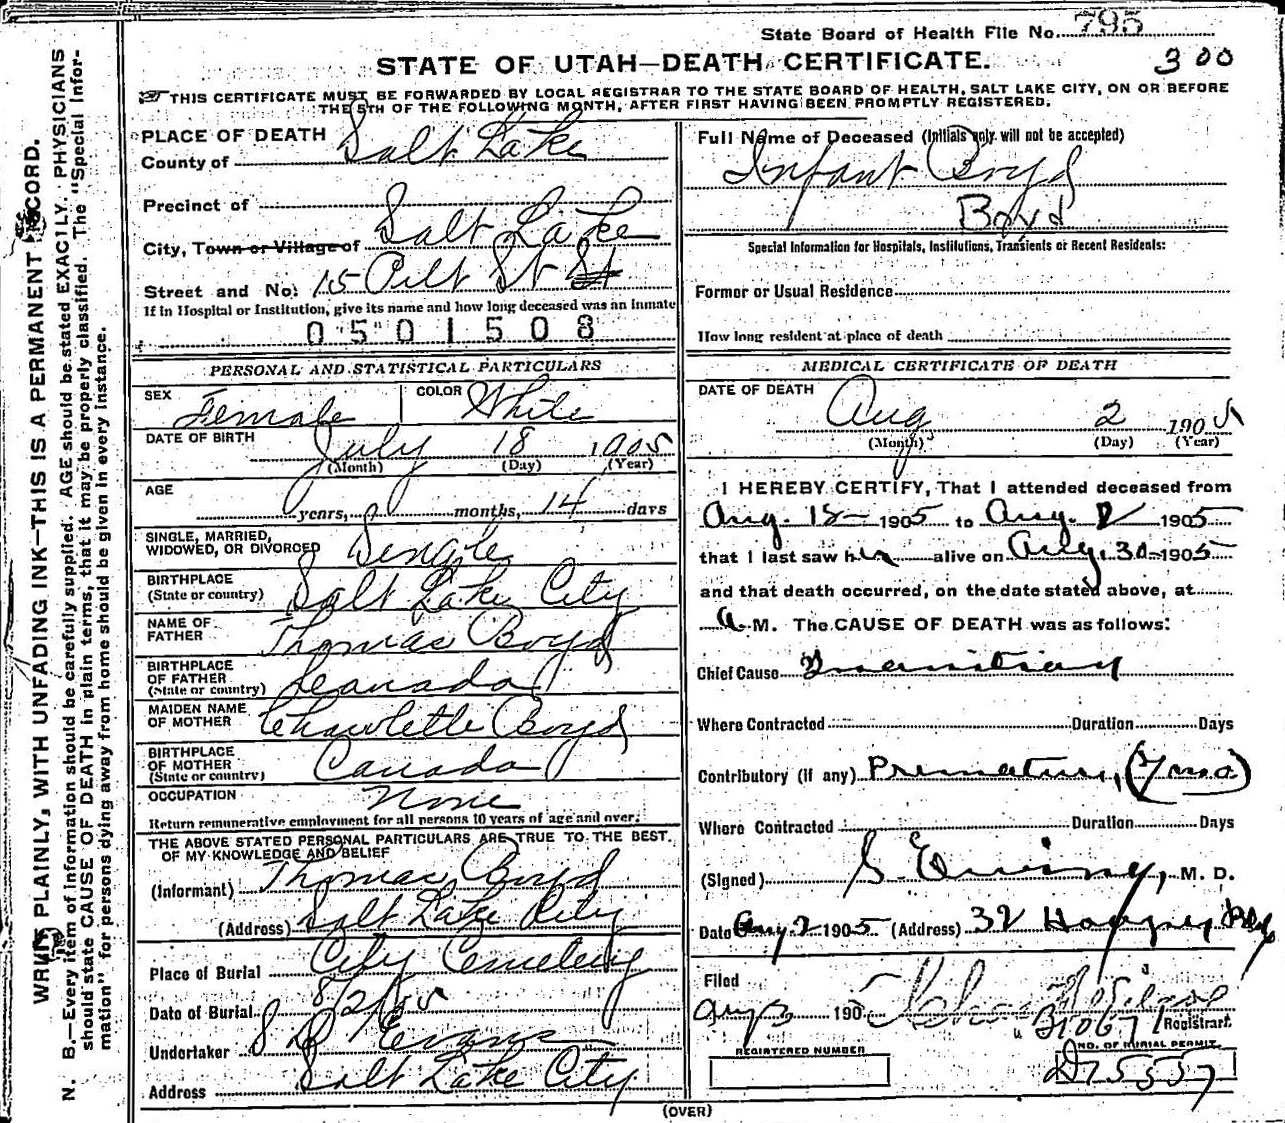 State Board of Health File No. 795
STATE OF UTAH—DEATH CERTIFICATE. 300
THIS CERTIFICATE MUST BE FORWARDED BY LOCAL REGISTRAR TO THE STATE BOARD OF HEALTH, SALT LAKE CITY, ON OR BEFORE
THE 5TH OF THE FOLLOWING MONTH, AFTER FIRST HAVING BEEN PROMPTLY REGISTERED.
WRITE PLAINLY, WITH UNFADING INK—THIS IS A PERMANENT RECORD.
N. B.—Every item of information should be carefully supplied. AGE should be stated EXACTLY. PHYSICIANS
should state CAUSE OF DEATH in plain terms, that it may be properly classified. The "Special Infor-
mation" for persons dying away from home should be given in every instance.
PLACE OF DEATH
County of Salt Lake
Precinct of
City, Town or Village of Salt Lake
Street and No. 15 St St
If in Hospital or Institution, give its name and how long deceased was an inmate
0501508
PERSONAL AND STATISTICAL PARTICULARS
SEX Female COLOR White
DATE OF BIRTH July 18 1905
(Month) (Day) (Year)
AGE
years, months, 14 days
SINGLE, MARRIED,
WIDOWED, OR DIVORCED Single
BIRTHPLACE
(State or country) Salt Lake City
NAME OF
FATHER Thomas Boyd
BIRTHPLACE
OF FATHER
(State or country) Canada
MAIDEN NAME
OF MOTHER Charlotte Boyd
BIRTHPLACE
OF MOTHER
(State or country) Canada
OCCUPATION None
Return remunerative employment for all persons 10 years of age and over.
THE ABOVE STATED PERSONAL PARTICULARS ARE TRUE TO THE BEST
OF MY KNOWLEDGE AND BELIEF
(Informant) Thomas Boyd
(Address) Salt Lake City
Place of Burial City Cemetery
Date of Burial 8/2/05
Undertaker S D Evans
Address Salt Lake City
Full Name of Deceased (Initials only will not be accepted)
Infant Boyd
Boyd
Special Information for Hospitals, Institutions, Transients or Recent Residents:
Former or Usual Residence
How long resident at place of death
MEDICAL CERTIFICATE OF DEATH
DATE OF DEATH Aug 2 1905
(Month) (Day) (Year)
I HEREBY CERTIFY, That I attended deceased from
Aug. 18 1905 to Aug. 2 1905
that I last saw her alive on July 30 1905
and that death occurred, on the date stated above, at
a M. The CAUSE OF DEATH was as follows:
Chief Cause Inanition
Where Contracted Duration Days
Contributory (if any) Premature, (7 mo)
Where Contracted Duration Days
(Signed) S. Ewing, M. D.
Date Aug 2 1905 (Address) 32 Hooper Bldg
Filed
Aug 3 190
Registrar.
B1067
REGISTERED NUMBER
NO. OF BURIAL PERMIT
D75557
(OVER)